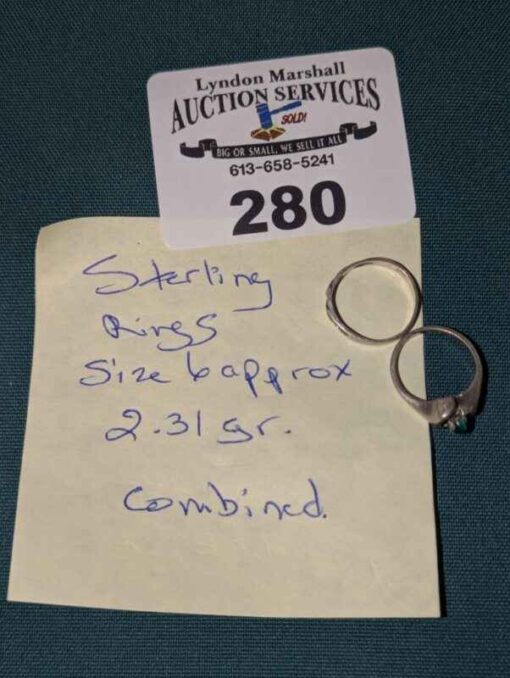 Lyndon Marshall
AUCTION SERVICES
SOLD!
BIG OR SMALL, WE SELL IT ALL
613-658-5241
280
Sterling
Rings
Size 6 approx
2.31 gr.
Combined.